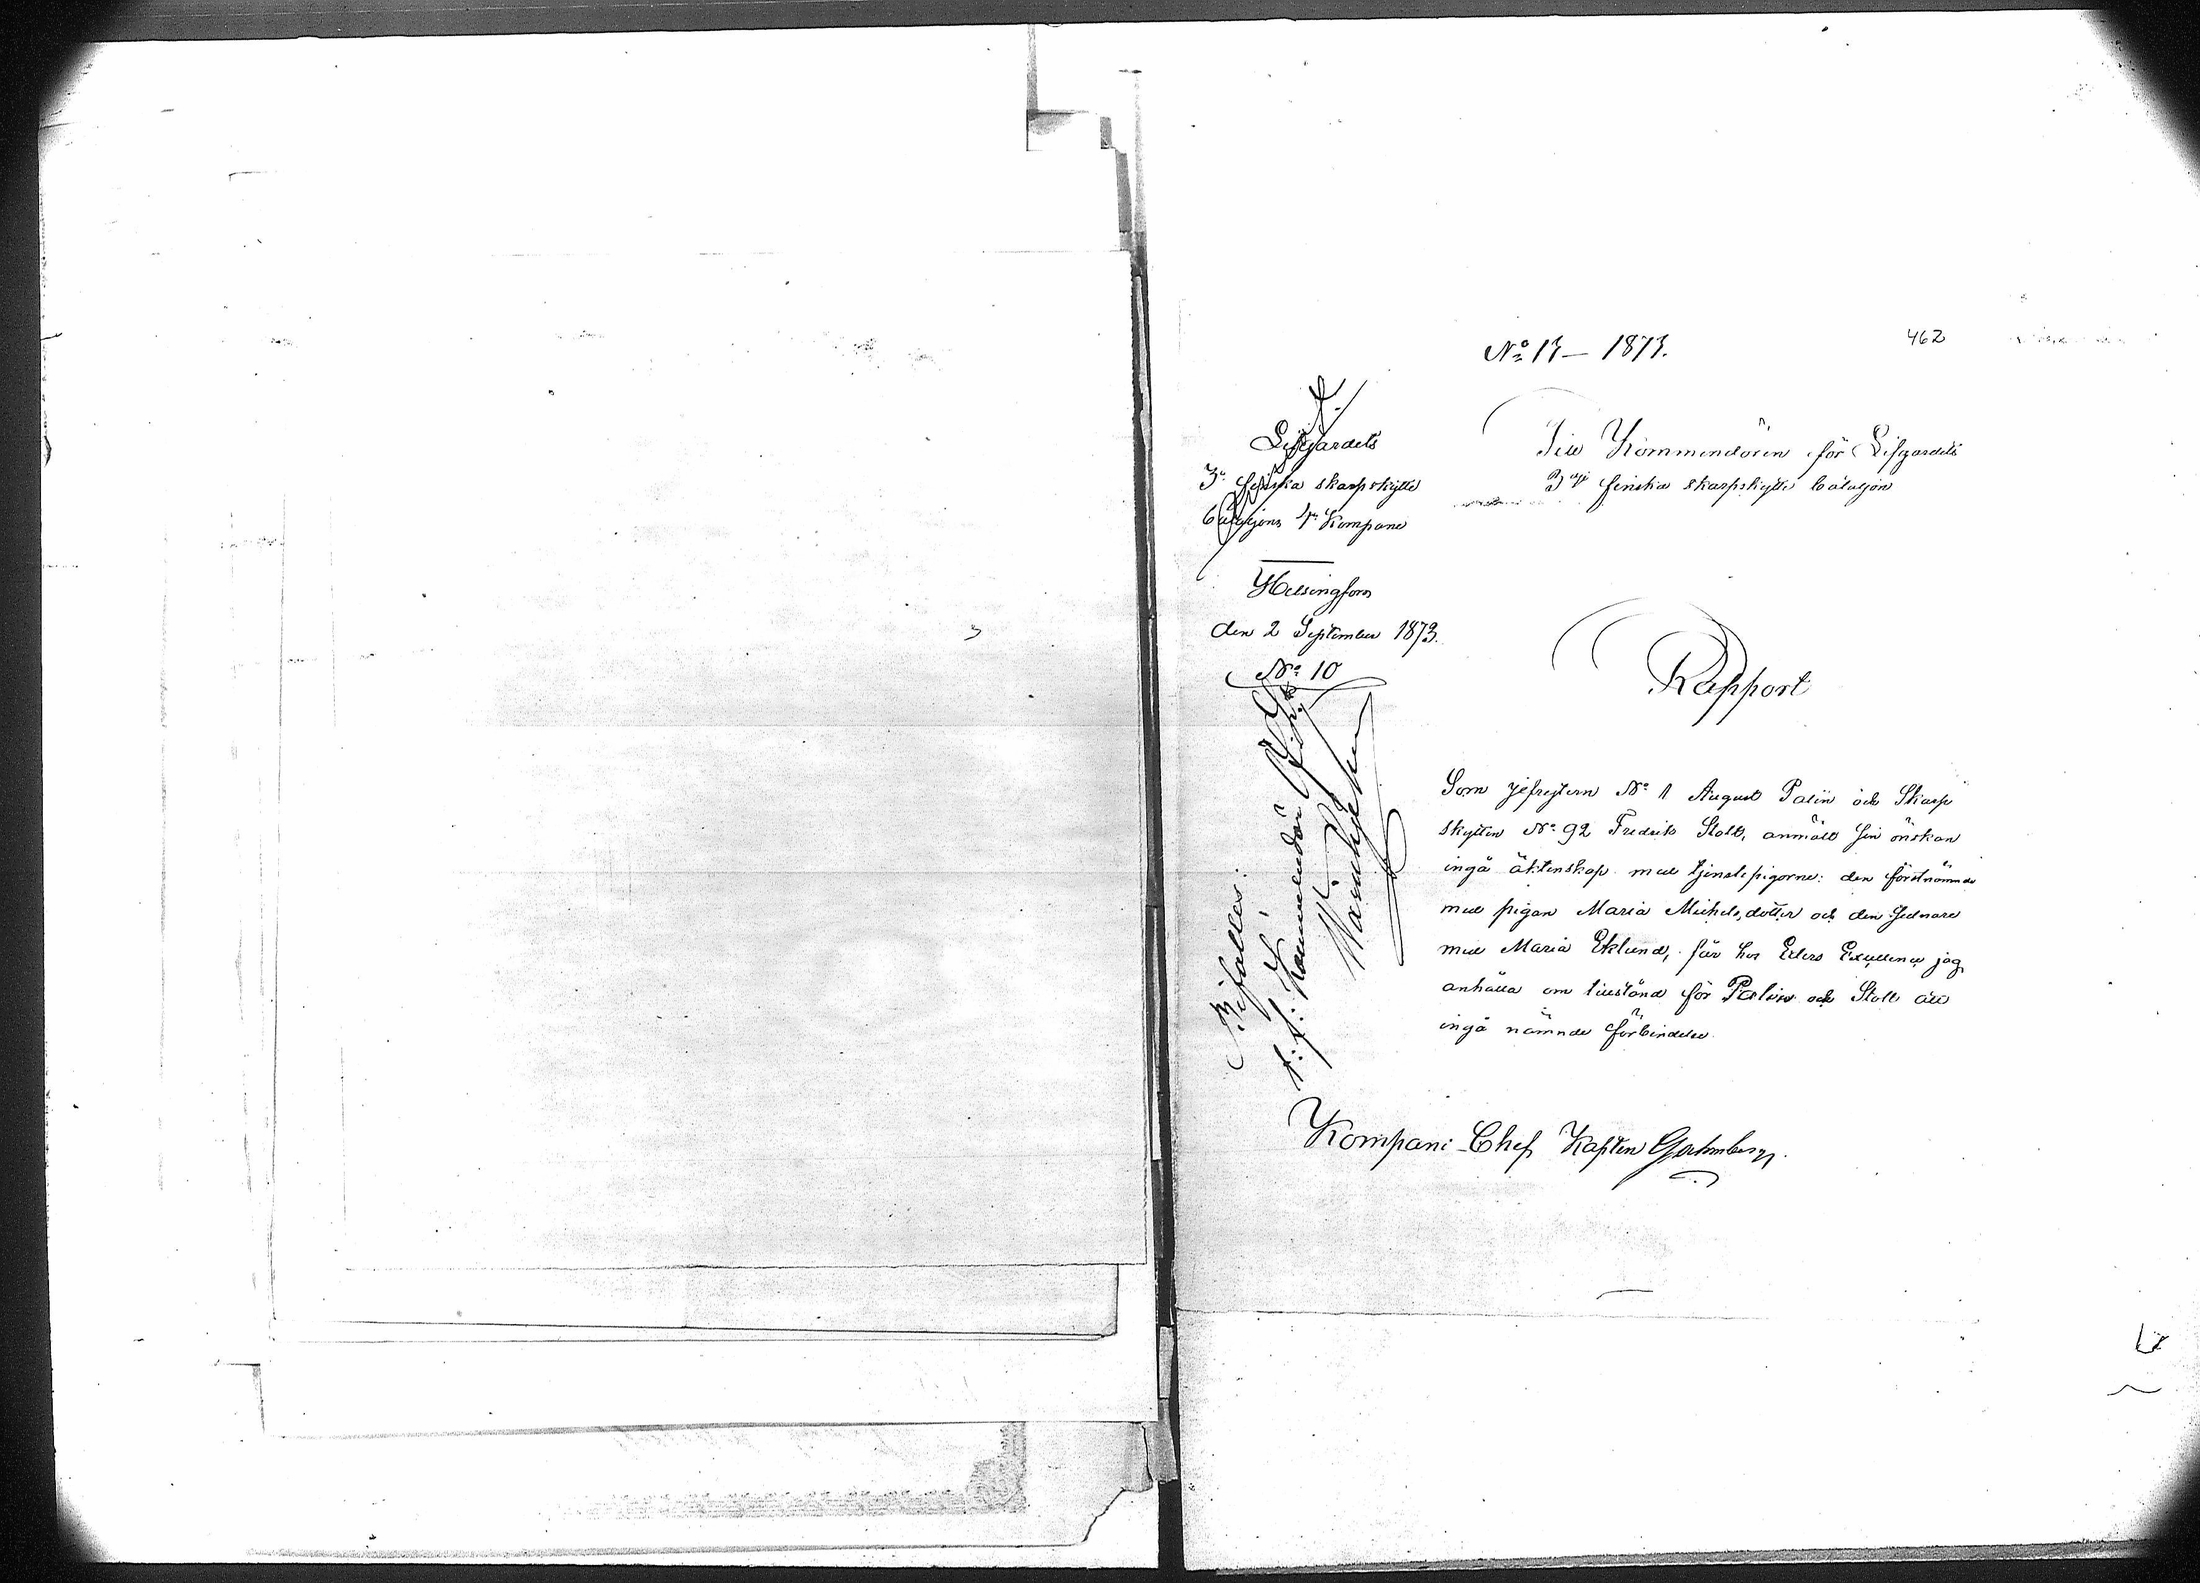 No 13 – 1873.
462
Lifgardets
3e finska skarpskytte
bataljons 4e Kompani
Helsingfors
den 2 September 1873.
No 10
Till Kommendören för Lifgardets
3dje finska skarpskytte bataljon
Rapport
Som gefrejtern No 1 August Palin och Skarp
skytten No 92 Fredrik Stolt, anmält sin önskan
ingå äktenskap med tjenstepigorne: den förstnämnde
med pigan Maria Michelsdotter och den sednare
med Maria Eklund, får hos Eders Excellence jag
anhålla om tillstånd för Palin och Stolt att
ingå nämnde förbindelse.
Kompani-Chef Kapten
Bifalles:
t. f. Kommendör